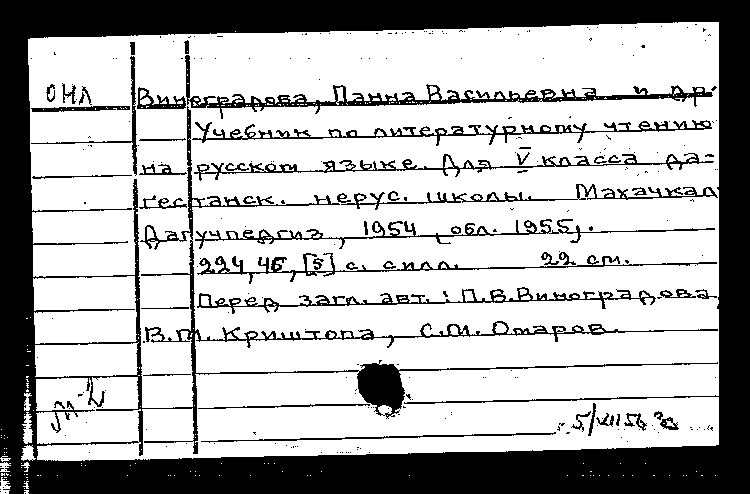 ОНЛ
Виноградова, Панна Васильевна и др.
Учебник по литературному чтению
на русском языке. Для V класса да=
гестанск. нерус. школы. Махачкал
Дагучпедгиз, 1954 [обл. 1955].
224, 46, [5] с. с илл. 22 см.
Перед загл. авт.: П.В.Виноградова,
В.М. Криштопа, С.М. Омаров.
М-2